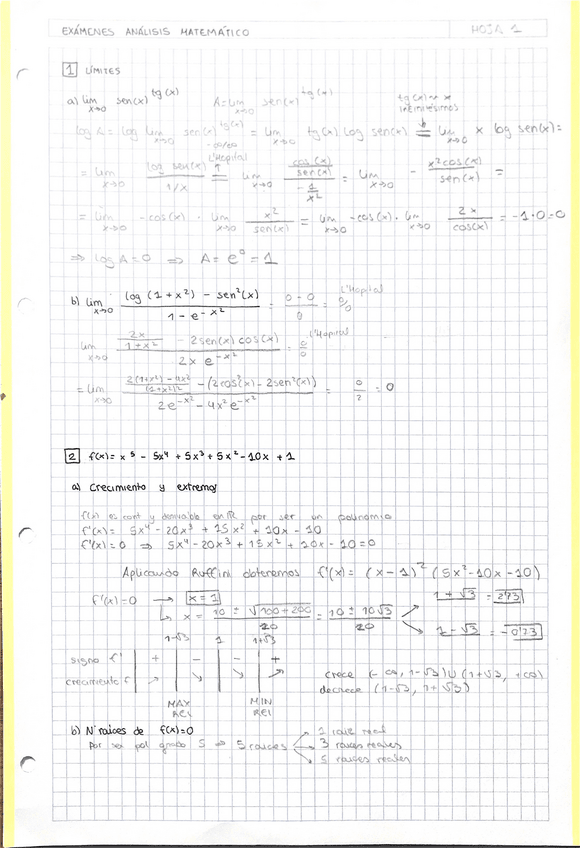 EXÁMENES ANÁLISIS MATEMÁTICO HOJA 1
1 LÍMITES
a) lim x→0 sen(x)^tg(x) A = lim x→0 sen(x)^tg(x) tg(x) ~ x infinitésimos
log A = log lim x→0 sen(x)^tg(x) = lim x→0 tg(x) log sen(x) = lim x→0 x log sen(x) =
= lim x→0 log sen(x) / 1/x = -∞/∞ L'Hopital lim x→0 cos(x)/sen(x) / -1/x² = lim x→0 - x²cos(x)/sen(x) =
= lim x→0 -cos(x) · lim x→0 x²/sen(x) = lim x→0 -cos(x) · lim x→0 2x/cos(x) = -1·0=0
⇒ log A = 0 ⇒ A = e⁰ = 1
b) lim x→0 log(1+x²) - sen²(x) / 1 - e^-x² = 0-0/0 = 0/0 L'Hopital
lim x→0 2x/1+x² - 2sen(x) cos(x) / 2x e^-x² = 0/0 L'Hopital
= lim x→0 2(1+x²)-4x²/(1+x²)² - (2cos²(x) - 2sen²(x)) / 2e^-x² - 4x²e^-x² = 0/2 = 0
2 f(x) = x⁵ - 5x⁴ + 5x³ + 5x² - 10x + 1
a) Crecimiento y extremos
f(x) es cont y derivable en ℝ por ser un polinomio
f'(x) = 5x⁴ - 20x³ + 15x² + 10x - 10
f'(x) = 0 ⇒ 5x⁴ - 20x³ + 15x² + 10x - 10 = 0
Aplicando Ruffini obtenemos f'(x) = (x-1)² (5x² - 10x - 10)
f'(x) = 0 → x = 1
x = 10 ± √100+200 / 10 = 10 ± 10√3 / 10
1+√3 = 2'73
1-√3 = -0'73
1-√3 1 1+√3
signo f' + - - +
crecimiento f ↗ ↘ ↘ ↗
MAX REL MIN REL
crece (-∞, 1-√3) ∪ (1+√3, +∞)
decrece (1-√3, 1+√3)
b) Nº raíces de f(x)=0
Por ser pol grado 5 ⇒ 5 raíces
1 raíz real
3 raíces reales
5 raíces reales